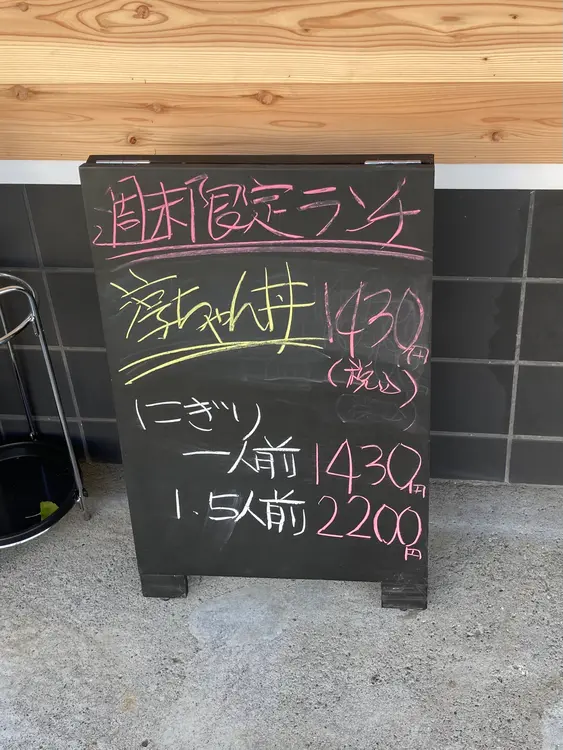 週末限定ランチ
淳ちゃん丼 1430円
(税込)
にぎり
一人前 1430円
1.5人前 2200円